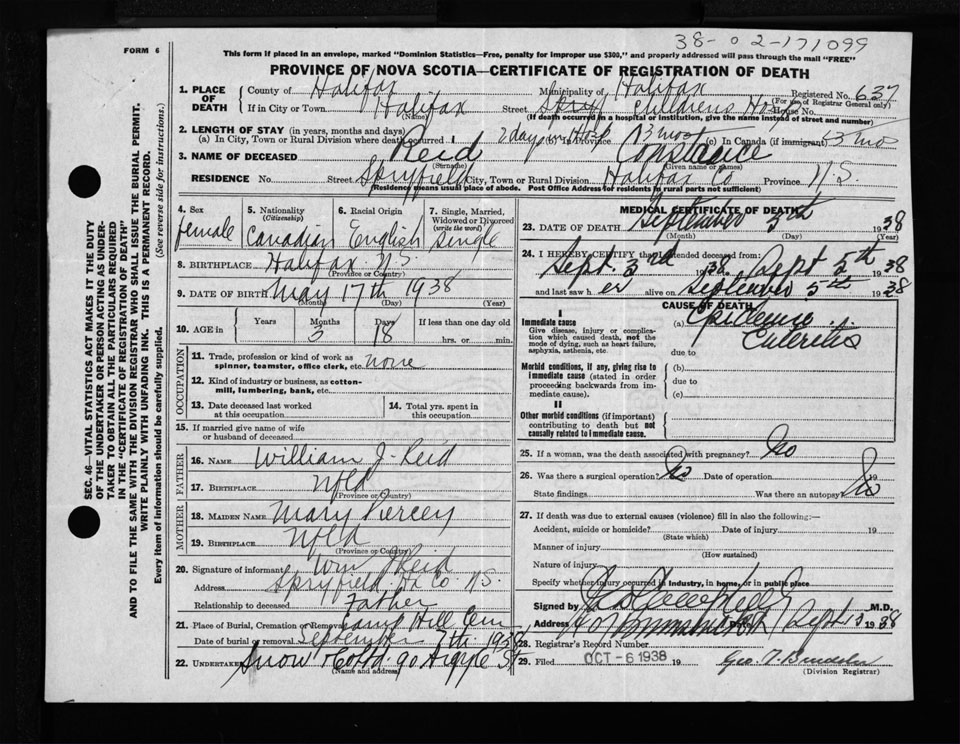 38-02-171099
FORM 6
This form if placed in an envelope, marked "Dominion Statistics—Free, penalty for improper use $300," and properly addressed will pass through the mail "FREE"
PROVINCE OF NOVA SCOTIA—CERTIFICATE OF REGISTRATION OF DEATH
SEC. 46—VITAL STATISTICS ACT MAKES IT THE DUTY
OF THE UNDERTAKER OR PERSON ACTING AS UNDER-
TAKER TO OBTAIN ALL THE PARTICULARS REQUIRED
IN THE "CERTIFICATE OF REGISTRATION OF DEATH"
AND TO FILE THE SAME WITH THE DIVISION REGISTRAR WHO SHALL ISSUE THE BURIAL PERMIT.
WRITE PLAINLY WITH UNFADING INK. THIS IS A PERMANENT RECORD.
Every item of information should be carefully supplied. (See reverse side for instructions.)
1. PLACE OF DEATH County of Halifax Municipality of Halifax Registered No. 637
(For use of Registrar General only)
If in City or Town Halifax Street Childrens Hosp House No.
(Name)
(If death occurred in a hospital or institution, give the name instead of street and number)
2. LENGTH OF STAY (in years, months and days)
(a) In City, Town or Rural Division where death occurred 2 days in Hosp (b) in Province 3 mos (c) In Canada (if immigrant) 3 mos
3. NAME OF DECEASED Reid Constance
(Surname) (Given name or names)
RESIDENCE No. Street Spryfield City, Town or Rural Division Halifax Co Province N.S.
(Residence means usual place of abode. Post Office Address for residents in rural parts not sufficient)
4. Sex female
5. Nationality (Citizenship) Canadian
6. Racial Origin English
7. Single, Married, Widowed or Divorced (write the word) Single
8. BIRTHPLACE Halifax N.S.
(Province or Country)
9. DATE OF BIRTH May 17th 1938
(Month) (Day) (Year)
10. AGE in Years Months 3 Days 18 If less than one day old hrs. or min.
OCCUPATION
11. Trade, profession or kind of work as spinner, teamster, office clerk, etc. none
12. Kind of industry or business, as cotton-mill, lumbering, bank, etc.
13. Date deceased last worked at this occupation
14. Total yrs. spent in this occupation
15. If married give name of wife or husband of deceased
FATHER
16. NAME William J. Reid
17. BIRTHPLACE Nfld
(Province or Country)
MOTHER
18. MAIDEN NAME Mary Piercey
19. BIRTHPLACE Nfld
(Province or Country)
20. Signature of informant Wm J Reid
Address Spryfield Hx Co. N.S.
Relationship to deceased Father
21. Place of Burial, Cremation or Removal Camp Hill Cem
Date of burial or removal September 7th 1938
22. UNDERTAKER Snow & Co Ltd. 90 Argyle St
(Name and address)
MEDICAL CERTIFICATE OF DEATH
23. DATE OF DEATH September 5th 1938
(Month) (Day) (Year)
24. I HEREBY CERTIFY that I attended deceased from:
Sept. 3rd 1938 Sept 5th 1938
and last saw her alive on September 5th 1938
CAUSE OF DEATH
I
Immediate cause
Give disease, injury or complication which caused death, not the mode of dying, such as heart failure, asphyxia, asthenia, etc.
(a) Epidemic Enteritis
due to
Morbid conditions, if any, giving rise to immediate cause (stated in order proceeding backwards from immediate cause).
(b)
due to
(c)
II
Other morbid conditions (if important) contributing to death but not causally related to immediate cause.
25. If a woman, was the death associated with pregnancy? No
26. Was there a surgical operation? No Date of operation 19
State findings Was there an autopsy? No
27. If death was due to external causes (violence) fill in also the following:—
Accident, suicide or homicide? Date of injury 19
(State which)
Manner of injury
(How sustained)
Nature of injury
Specify whether injury occurred in industry, in home, or in public place
Signed by M.D.
Address Date Sept 1938
28. Registrar's Record Number
29. Filed OCT - 6 1938 19
(Division Registrar)